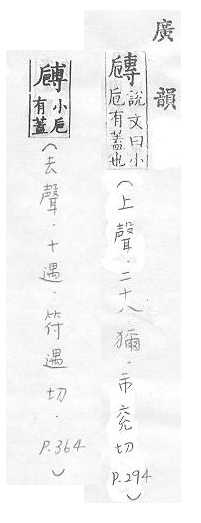 廣韻
說文曰小巵有蓋也(上聲．二十八獮．市兗切P.294)
小巵有蓋(去聲．十遇．符遇切．P.364)